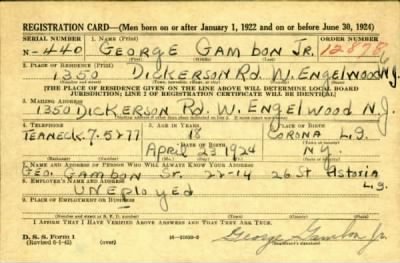 REGISTRATION CARD—(Men born on or after January 1, 1922 and on or before June 30, 1924)
SERIAL NUMBER 1. NAME (Print) ORDER NUMBER
N-440 GEORGE GAMBON JR. 12878
(First) (Middle) (Last)
2. PLACE OF RESIDENCE (Print)
1350 DICKERSON Rd. W. ENGELWOOD N.J.
(Number and street) (Town, township, village, or city) (County) (State)
[THE PLACE OF RESIDENCE GIVEN ON THE LINE ABOVE WILL DETERMINE LOCAL BOARD
JURISDICTION; LINE 2 OF REGISTRATION CERTIFICATE WILL BE IDENTICAL]
3. MAILING ADDRESS
1350 DICKERSON Rd. W. ENGELWOOD N.J.
4. TELEPHONE 5. AGE IN YEARS 6. PLACE OF BIRTH
TEANECK. 7-5277 18 CORONA L.I.
DATE OF BIRTH
APRIL 23 1924 N.Y.
7. NAME AND ADDRESS OF PERSON WHO WILL ALWAYS KNOW YOUR ADDRESS
GEO. GAMBON Sr. 22-14 26 St Astoria L.I.
8. EMPLOYER'S NAME AND ADDRESS
UNEployed
9. PLACE OF EMPLOYMENT OR BUSINESS
(Number and street or R. F. D. number) (Town) (County) (State)
I AFFIRM THAT I HAVE VERIFIED ABOVE ANSWERS AND THAT THEY ARE TRUE.
D. S. S. Form 1
(Revised 6-1-42) (over) George Gambon Jr.
(Registrant's signature)